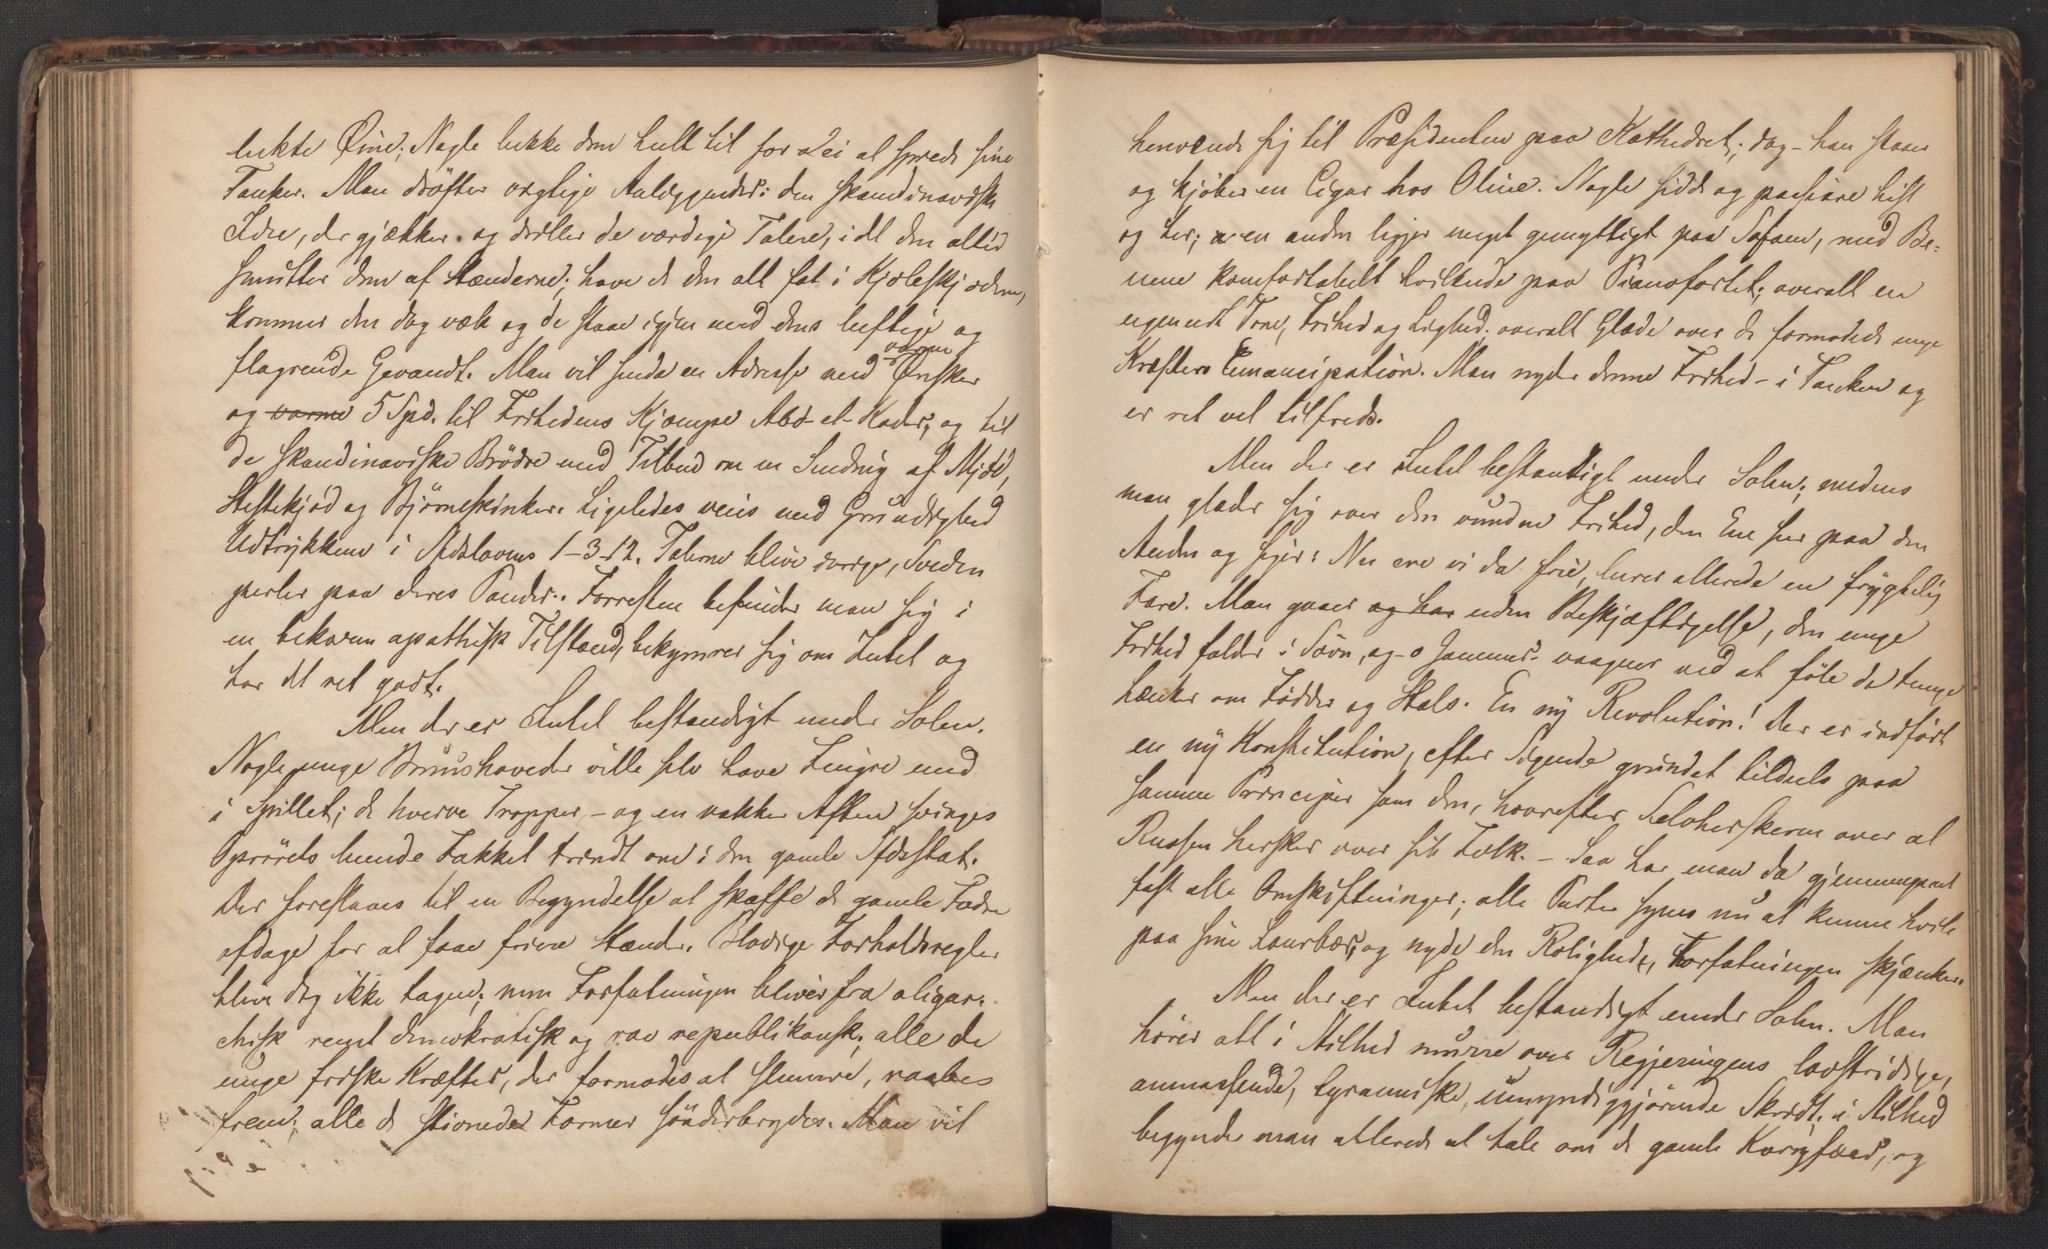 lukte Øine; Nogle lukke dem helt til for ei at sprede sine
Tanker. Man drøfter vigtige Anliggender: den skandinaviske
Idee, der gjækker og driller de værdige Talere, idet den altid
smutter dem af Hænderne; have de den alt fat i Kjoleskjøderne,
kommer den dog væk og de staae igjen med dens luftige og
flagrende Gevandt. Man vil sende en Adresse med varme Ønsker
og varme 5 Spd. til Frihedens Kjæmpe Abd-el-Kader, og til
de skandinaviske Brødre med Tilbud om en Sending af Mjød,
Hestekjød og Bjørneskinker. Ligeledes veies med Grundighed
Udtrykkene i Lovens 1-3-12. Talerne blive ivrige, Sveden
perler paa deres Pander. Forresten befinder man sig i
en bekvem apathisk Tilstand, bekymrer sig om Intet og
har det ret godt.
Men der er Intet bestandigt under Solen.
Nogle unge Bruushoveder ville selv have Fingre med
i Spillet; de hverve Tropper, - og en vakker Aften svinges
Oprørets Fakkel tændt om i den gamle Stat.
Der foreslaaes til en Begyndelse at skaffe de gamle Fædre
afdage for at faae friere Hænder. Blodige Forholdsregler
blive dog ikke tagne; men Forfatningen bliver fra oligar-
chisk reent demokratisk og raa republikansk; alle de
unge friske Kræfter, der formodes at slumre, raabes
frem; alle de stivnede Former sønderbrydes. Man vil
henvende sig til Præsidenten paa Kathedret; dog - han staaer
og kjøber en Cigar hos Oline. Nogle sidde og passiare hist
og her; en anden ligger meget gemytligt paa Sofaen, med Be-
nene komfortabelt hvilende paa Pianofortet; overalt en
ugeneert Tone, Frihed og Lighed, overalt Glæde over de formodede unge
Kræfters Emancipation. Man nyder denne Frihed - i Tanken og
er ret vel tilfreds.
Men der er Intet bestandigt under Solen; medens
man glæder sig over den vundne Frihed, den Ene seer paa den
Anden og siger: Nu ere vi da frie, lurer allerede en frygtelig
Fare. Man gaaer og har uden Beskjæftigelse, den unge
Frihed falder i Søvn, og - o Jammer - vaagner ved at føle de tunge
Lænker om Fødder og Hals. En ny Revolution! Der er indført
en ny Konstitution, efter Sigende grundet tildeels paa
samme Principer som den, hvorefter Selvherskeren over al
Russen hersker over sit Folk. - Saa har man da gjennemgaaet
fast alle Omskiftninger; alle Parter synes nu at kunne hvile
paa sine Laurbær, og nyde den Rolighed, Forfatningen skjænker.
Men der er Intet bestandigt under Solen. Man
hører alt i Stilhed murre over Regjeringens lovstridige,
anmassende, tyranniske, umyndiggjørende Skridt; i Stilhed
begynder man allerede at tale om de gamle Koryfæer, og